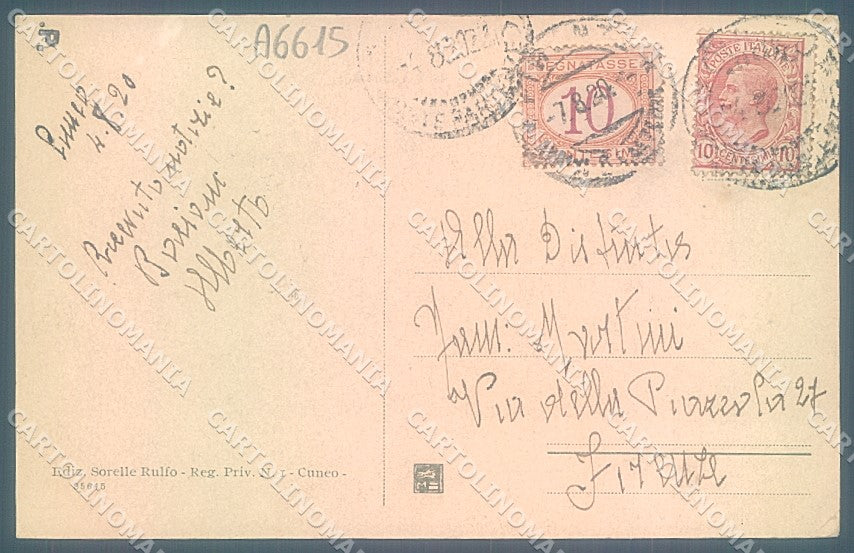 A6615
4.8.20
Ricevuto notizie?
Bacioni
Alberto
SEGNATASSE
10
-7.8.20
POSTE ITALIANE
10 CENTESIMI 10
Alla Distinta
Fam. Martini
Via della Piazzola 27
Firenze
Ediz. Sorelle Rulfo - Reg. Priv. N. 1 - Cuneo -
35645
CARTOLINOMANIA